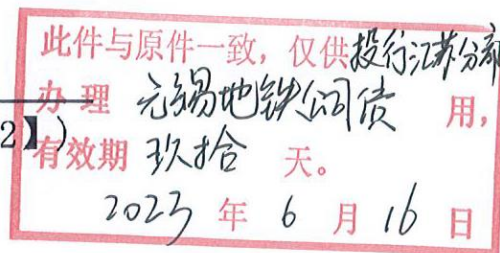 此件与原件一致，仅供投行江苏分部
办理 无锡地铁公司债 用，
2】）
有效期 玖拾 天。
2023 年 6 月 16 日